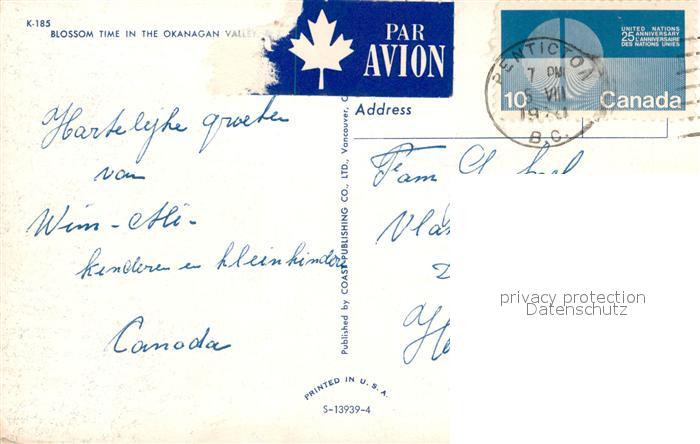 K-185
BLOSSOM TIME IN THE OKANAGAN VALLEY
PAR
AVION
UNITED NATIONS
25TH ANNIVERSARY
L'ANNIVERSAIRE
DES NATIONS UNIES
10
Canada
PENTICTON
7 PM
5 VIII
19
B.C.
Hartelijke groeten
van
Wim - Mi -
kinderen en kleinkinderen
Canada
Published by COAST PUBLISHING CO., LTD., Vancouver,
Address
Fam
privacy protection
Datenschutz
PRINTED IN U. S. A.
S-13939-4